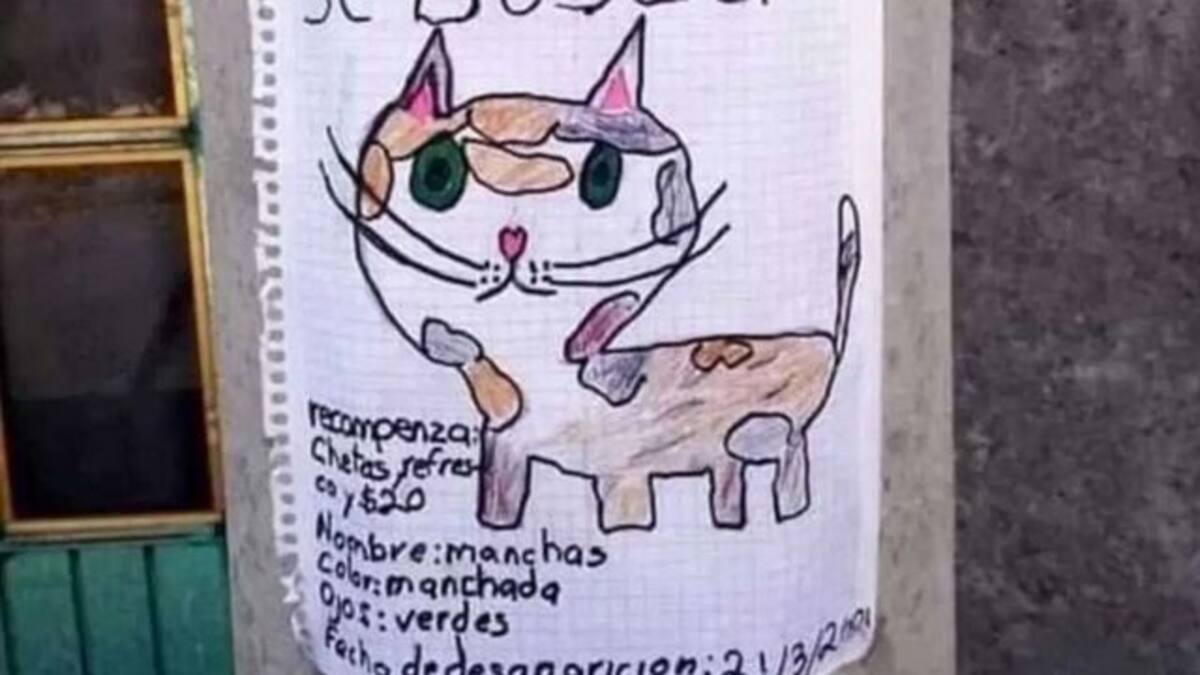 Se Busca
recompenza:
Chetas, refres
co y $20
Nombre: manchas
Color: manchada
Ojos: verdes
Fecha de desaparicion: 21/3/2021